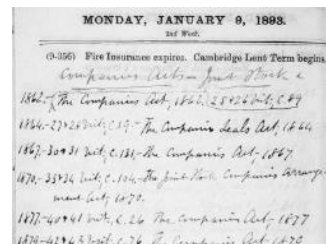 MONDAY, JANUARY 9, 1893.
2nd Week.
(9-356) Fire Insurance expires. Cambridge Lent Term begins
Companies Acts - Joint Stock
1862. - The Companies Act, 1862, 25 & 26 Vict, C. 89
1864. - 27 & 28 Vict, C. 19. - The Companies Seals Act, 1864
1867. - 30 & 31 Vict, C. 131, - The Companies Act, - 1867
1870, - 33 & 34 Vict, C. 104, - The Joint Stock Companies Arrange-
ment Act, 1870.
1877. - 40 & 41 Vict, C. 26 The Companies Act, - 1877
1879 - 42 & 43 Vict, C. 76 The Companies Act, 1879